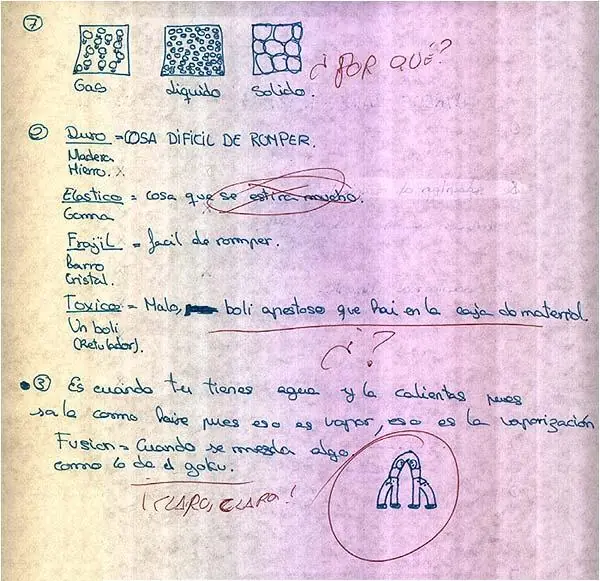 7
Gas liquido Solido. ¿POR QUÉ?
2 Duro = COSA DIFICIL DE ROMPER.
Madera
Hierro.
Elastico = cosa que se estira mucho.
Goma
Frajil = facil de rormper.
Barro
Cristal.
Toxico = Malo, boli apestoso que hai en la caja do material.
Un boli
(Retulador).
¿?
3 Es cuándo tu tienes agua y la calientas pues
sale como haire pues eso es vapor, eso es la vaporización
Fusion = Cuando se mezcla algo
como lo de el goku.
¡CLARO, CLARO!